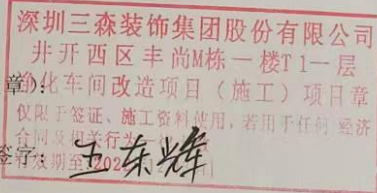 深圳三森装饰集团股份有限公司
井开西区丰尚M栋一楼T1一层
净化车间改造项目（施工）项目章
章）：
仅限于签证、施工资料使用，若用于任何经济
合同及相关行为
签字：东辉
有效期至202